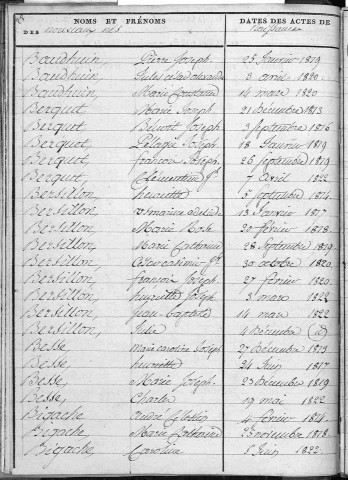 NOMS ET PRÉNOMS DATES DES ACTES DE
DES nouveaux nés Naissance
Baudhuin, Pierre Joseph 25 Janvier 1819
Baudhuin, Jules 3 avril 1820
Baudhuin, Marie 14 mars 1820
Berquet Marie Joseph 21 Décembre 1813
Berquet, Benoit Joseph 3 Septembre 1816
Berquet, Pélagie Joseph 18 Janvier 1819
Berquet, François Joseph 26 Septembre 1819
Berquet, Clémentine 7 avril 1822
Bersillon, henriette 5 Septembre 1814
Bersillon, adélaïde 13 Janvier 1817
Bersillon, Marie Rose 20 février 1818
Bersillon, Marie Catherine 28 Septembre 1819
Bersillon, Casimir 30 octobre 1820
Bersillon, françois Joseph 27 février 1820
Bersillon, henriette Joseph 3 mars 1822
Bersillon, jean baptiste 14 mars 1822
Bersillon, Julie 4 Décembre
Besse, marie caroline Joseph 27 Décembre 1813
Besse, henriette 24 Juin 1817
Besse, Marie Joseph 23 Décembre 1819
Besse, Charles 19 mai 1822
Bigache, andré Célestin 4 février 1814
Bigache, Marie Catherine 23 novembre 1818
Bigache, Caroline 8 Juin 1822